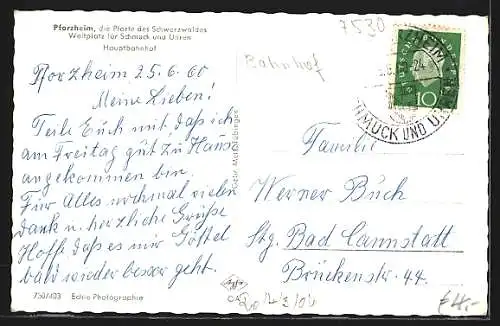 Pforzheim, die Pforte des Schwarzwaldes
Weltplatz für Schmuck und Uhren
Hauptbahnhof
7530
Bahnhof
Pforzheim 25.6.60
Meine Lieben!
Teile Euch mit daß ich
am Freitag gut zu Hause
angekommen bin.
Für Alles nochmal vielen
dank u. herzliche Grüße
Hoffe daß es mir
bald wieder besser geht.
Familie
Werner Buch
Stg. Bad Cannstatt
Brückenstr. 44.
DEUTSCHE BUNDESPOST
10
SCHMUCK UND U
Agfa
750/403 Echte Photographie
€ 4.-